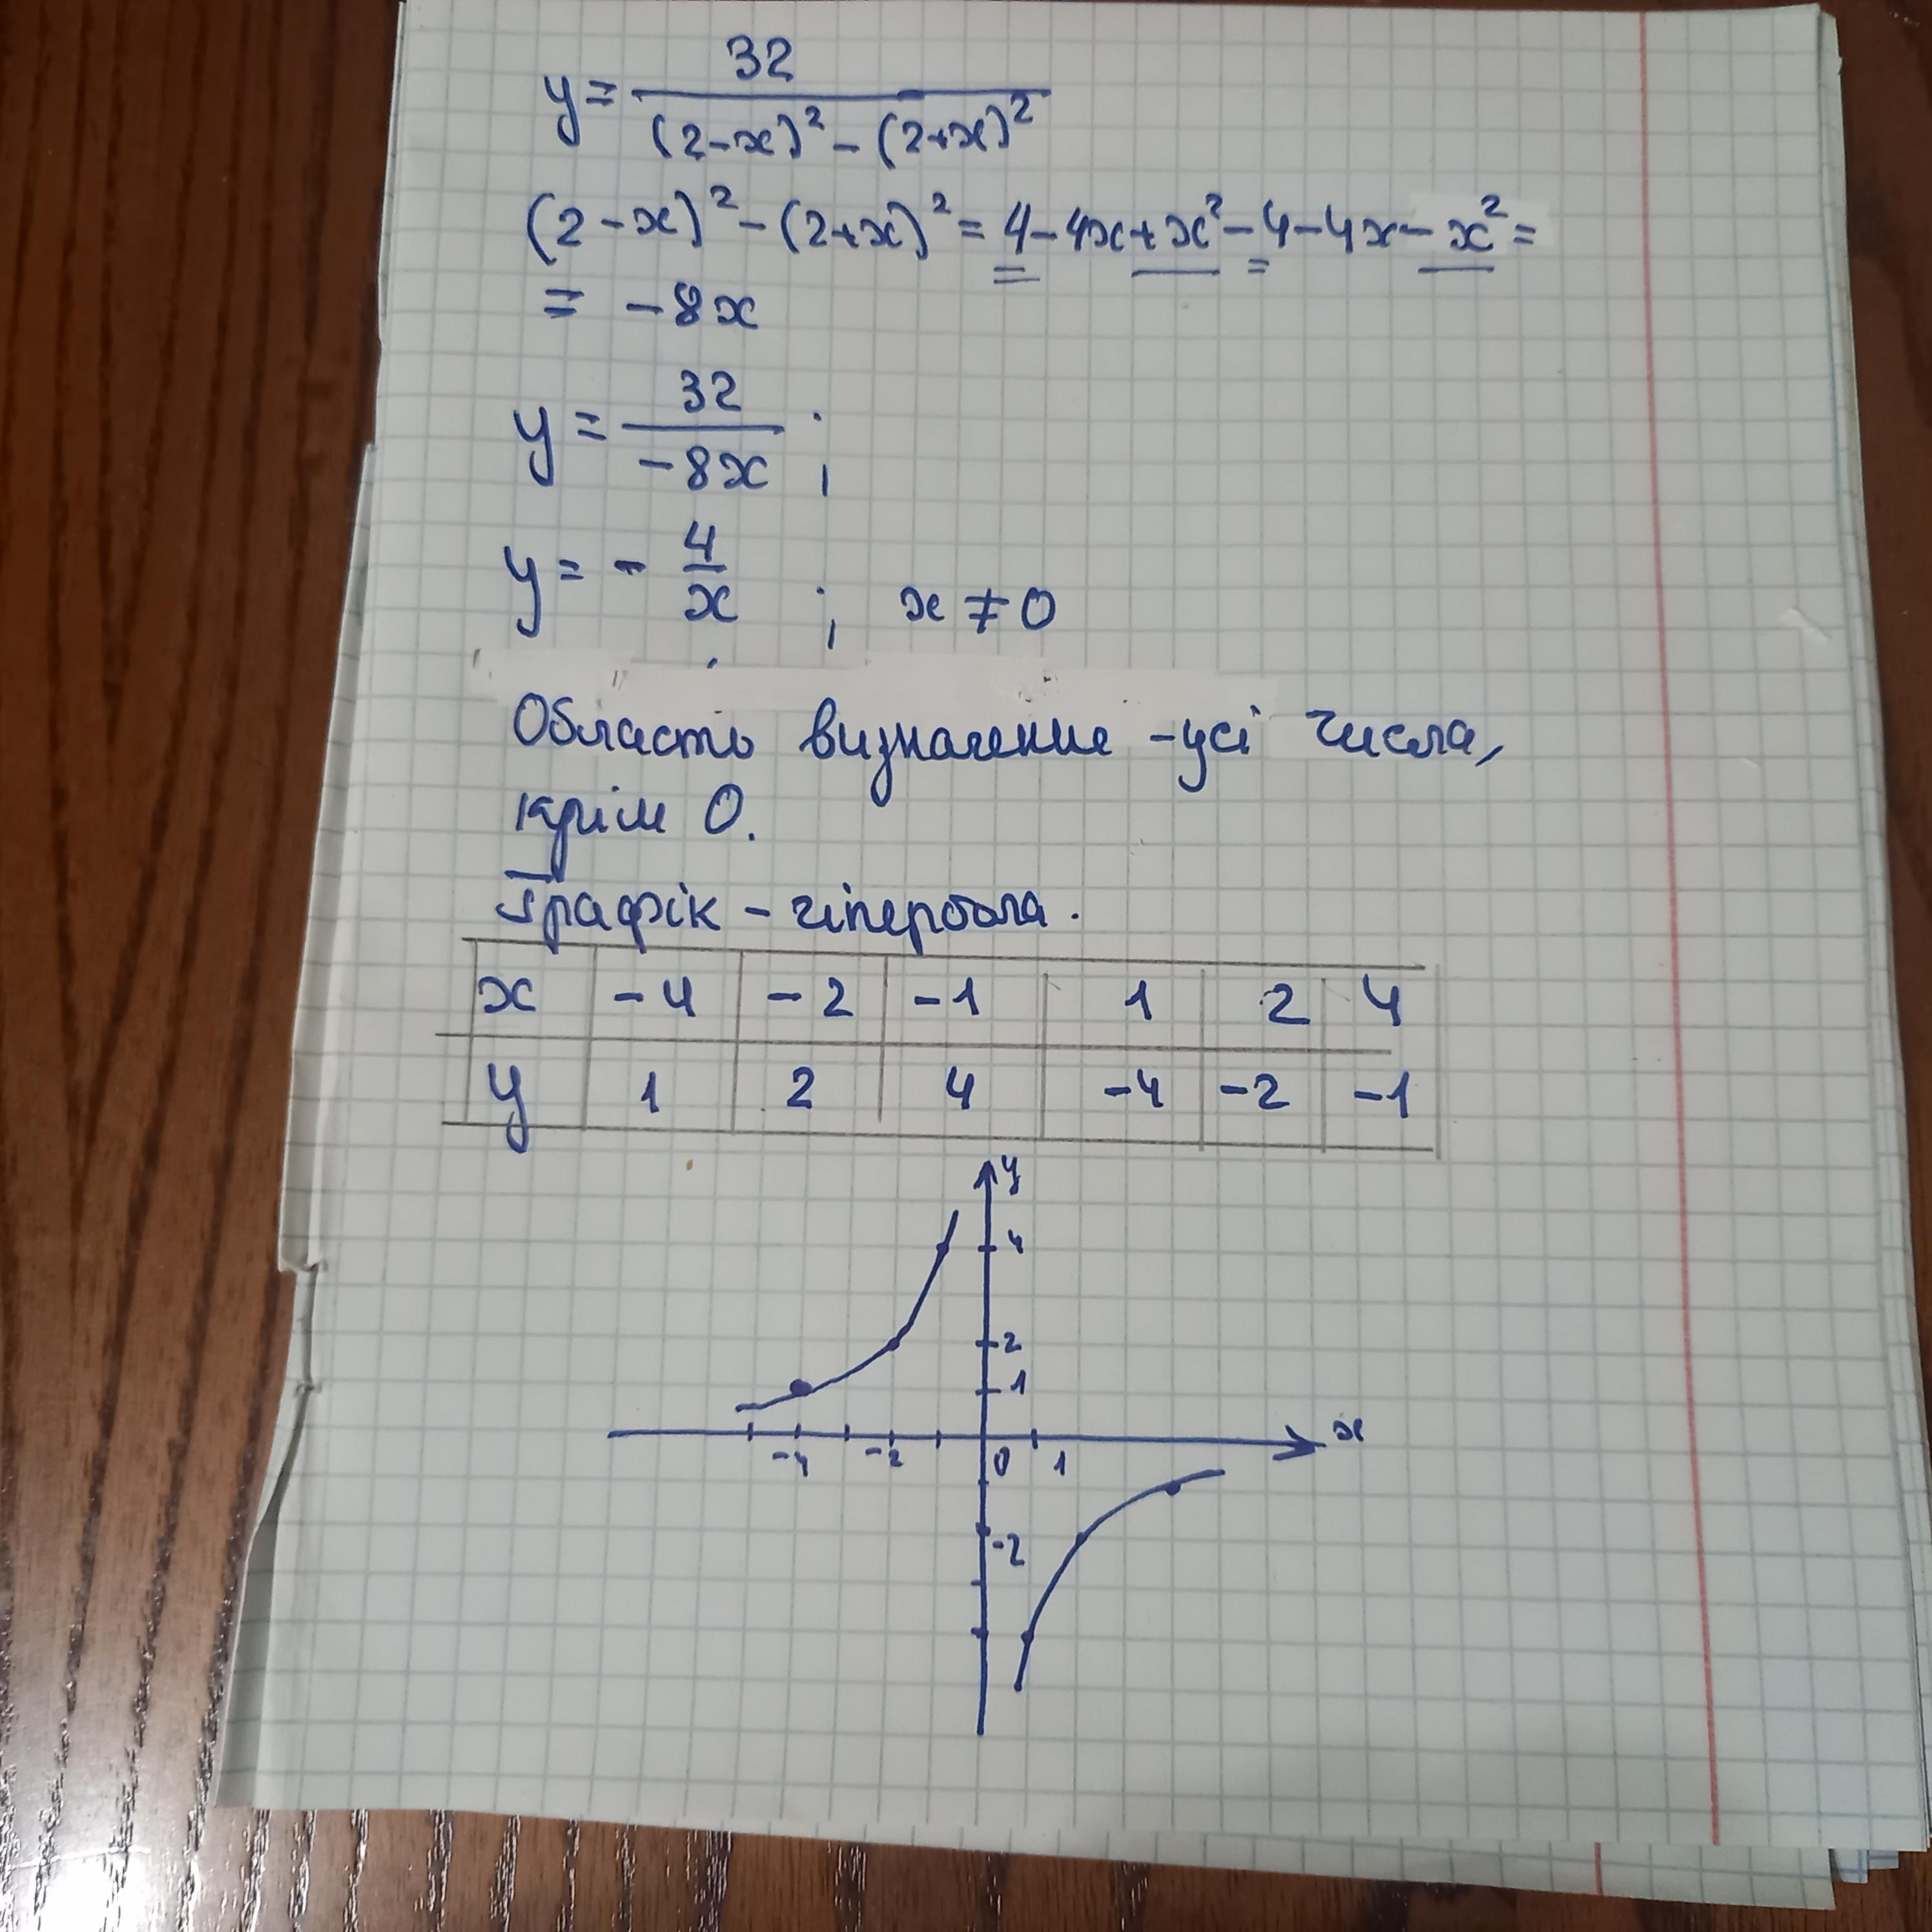 y = 32 / ((2-x)² - (2+x)²)
(2-x)² - (2+x)² = 4 - 4x + x² - 4 - 4x - x² =
= -8x
y = 32 / -8x ;
y = - 4/x ; x ≠ 0
Область визначення - усі числа,
крім 0.
Графік - гіпербола.
x -4 -2 -1 1 2 4
y 1 2 4 -4 -2 -1
y
4
2
1
-4 -2 0 1 x
-2